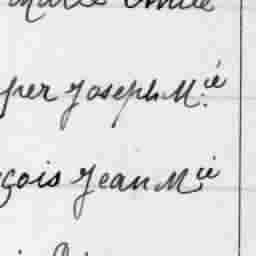 Marie Emile
per Joseph M.ié
çois Jean M.ie